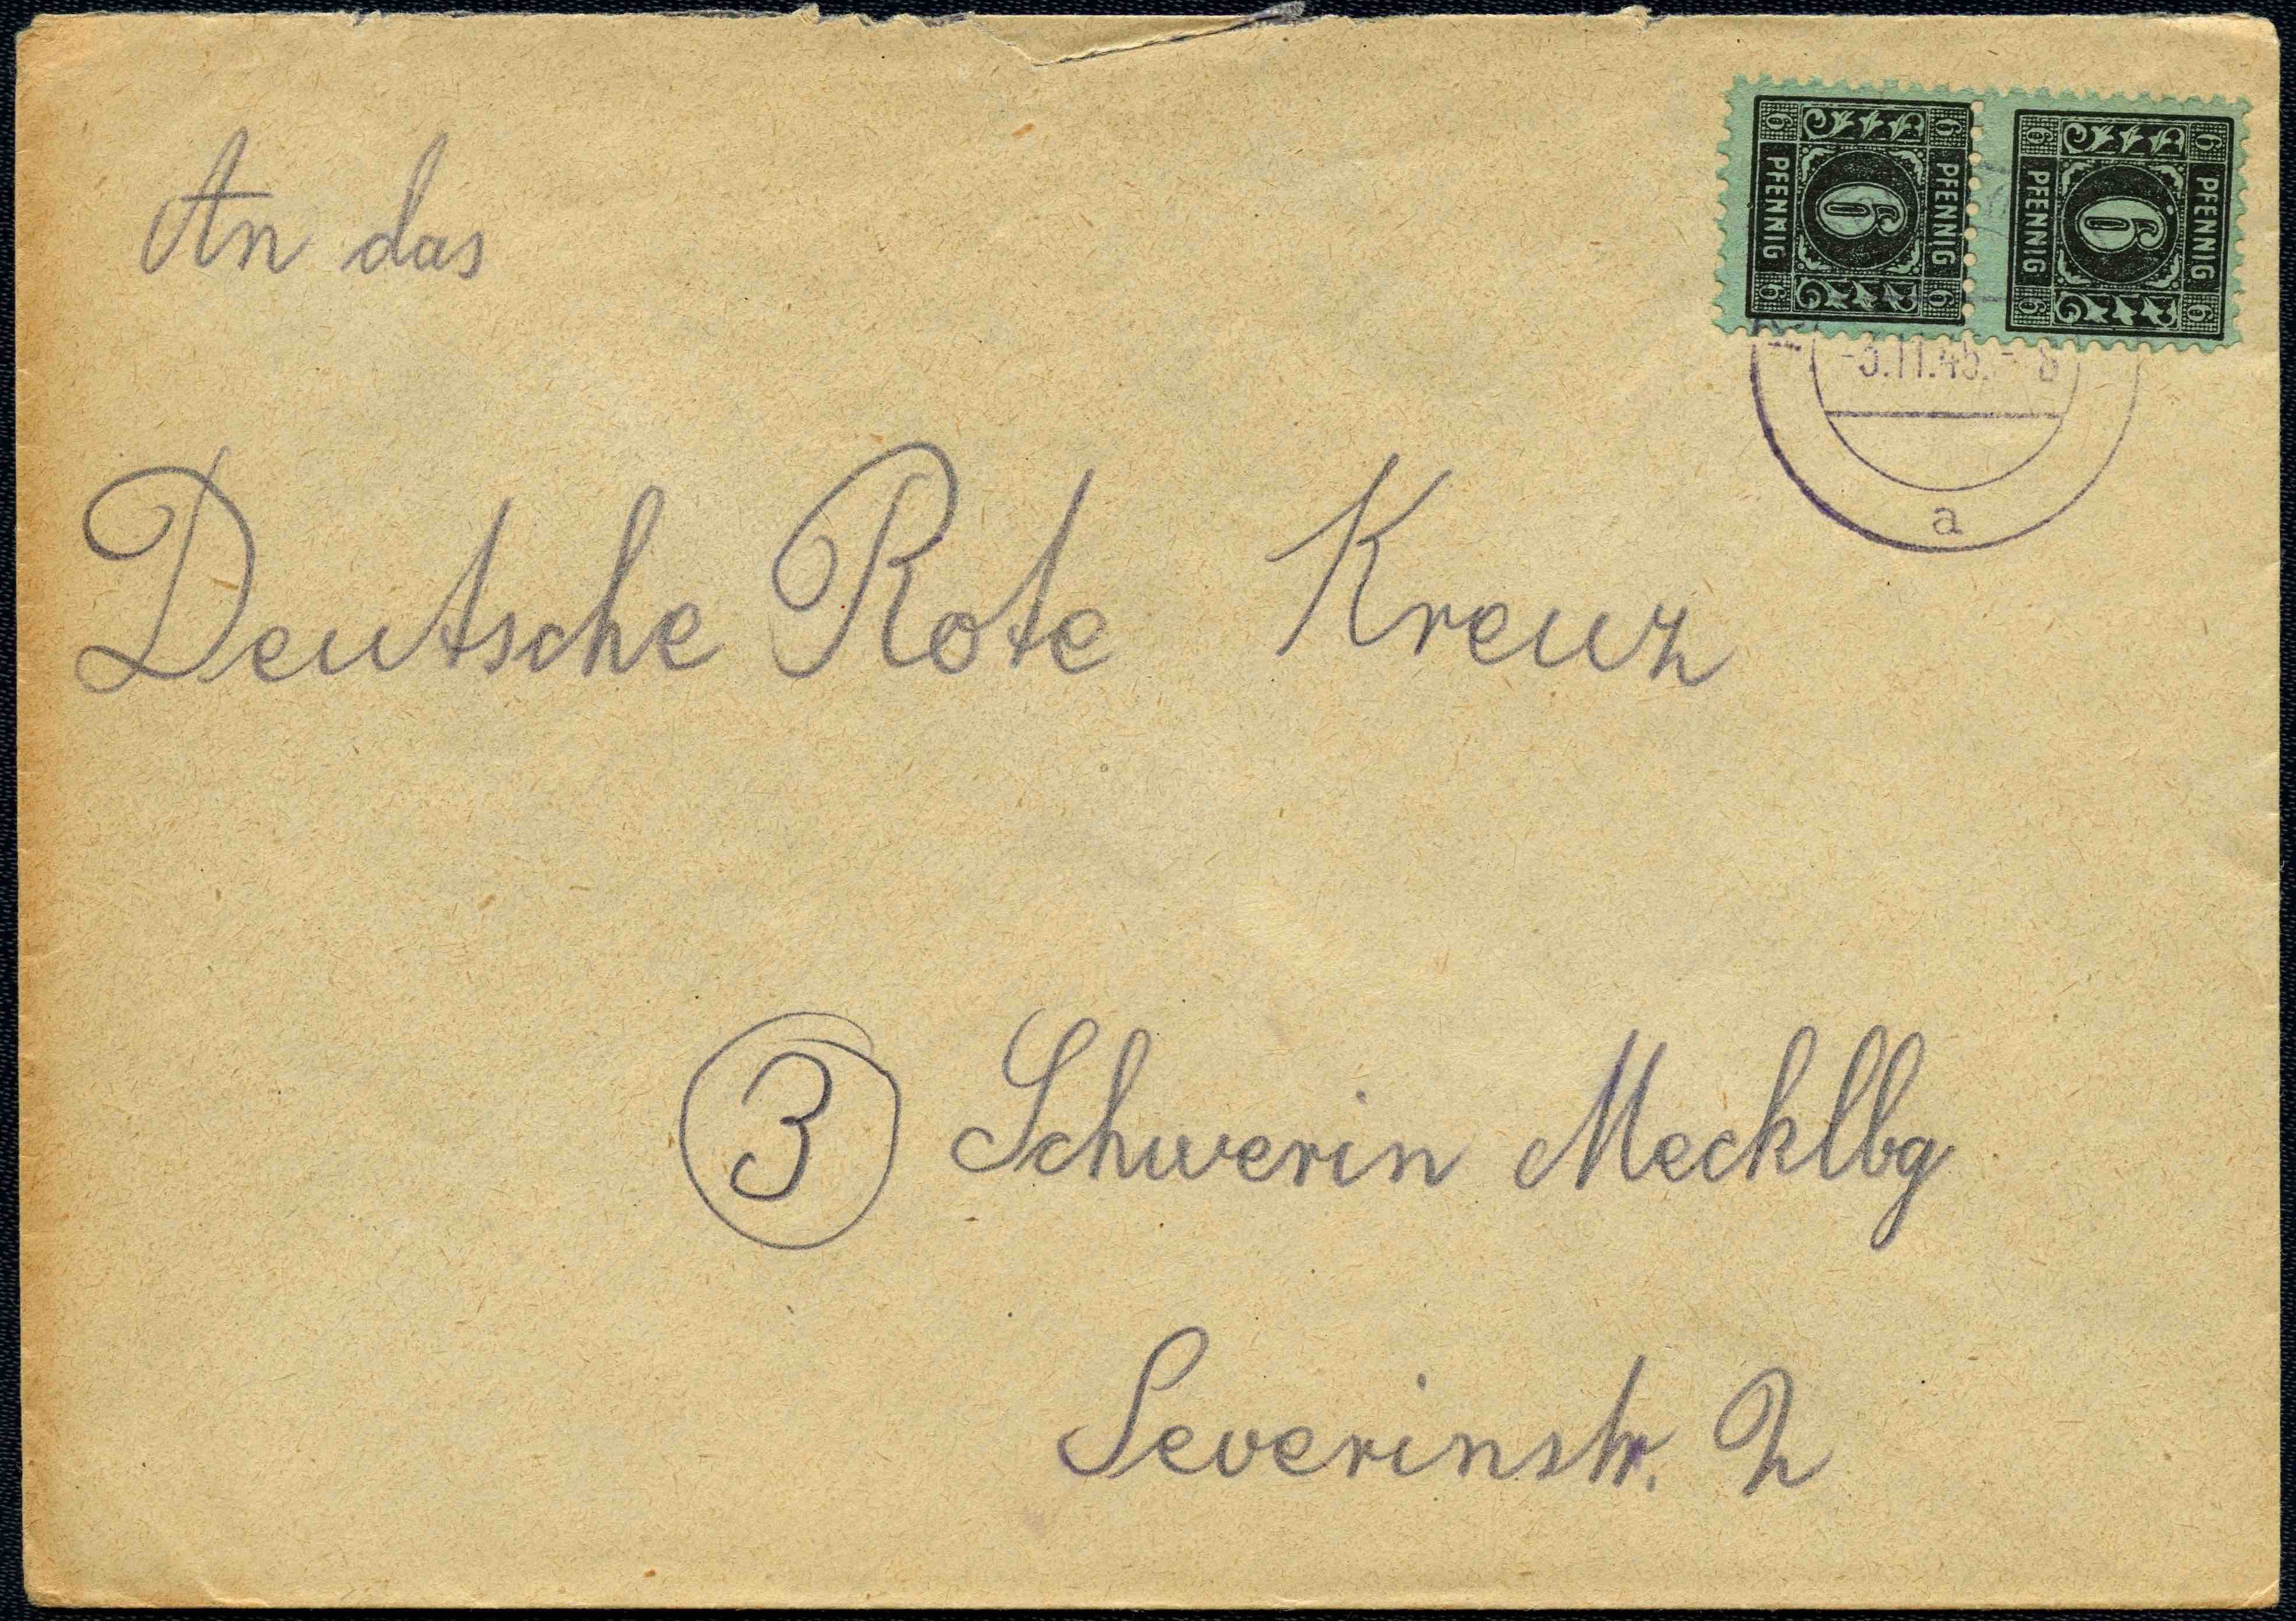 6 6
PFENNIG PFENNIG
6
6 6
6 6
PFENNIG PFENNIG
6
6 6
-3.11.45.- 8
a
An das
Deutsche Rote Kreuz
3 Schwerin Mecklbg
Severinstr. 2